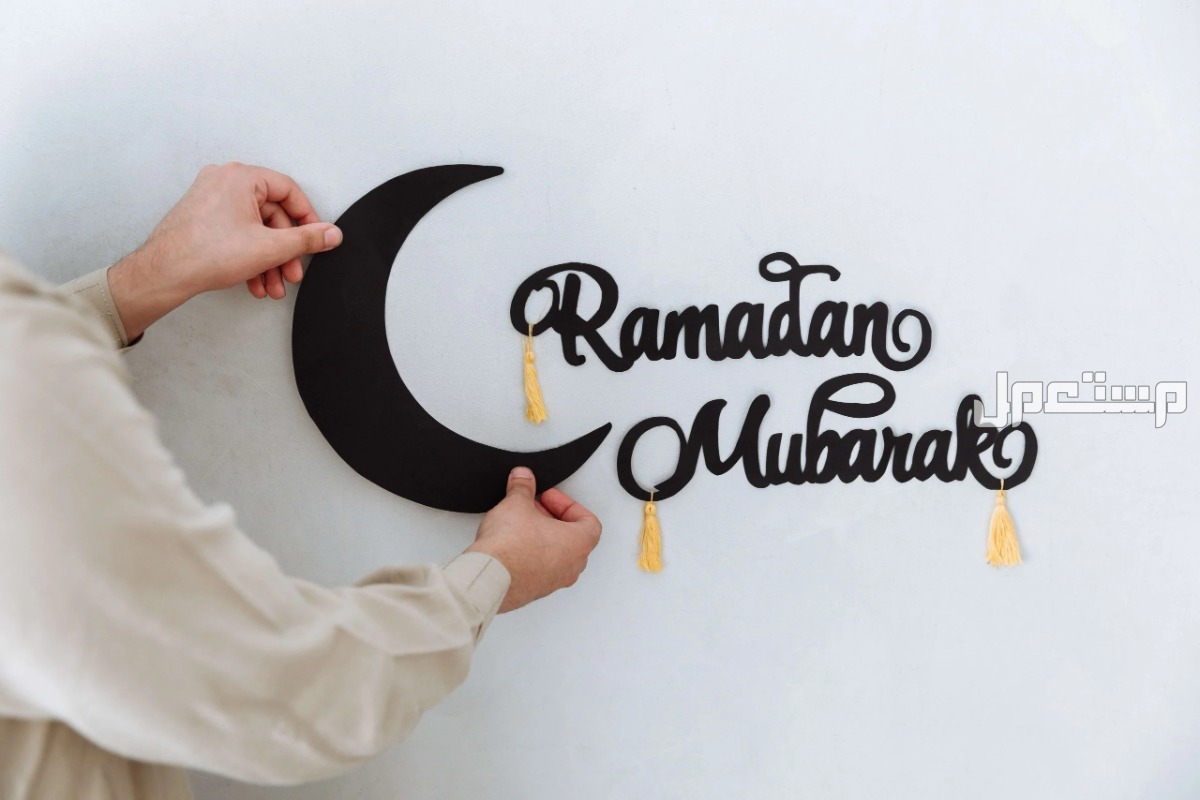 Ramadan
Mubarak
مستعمل